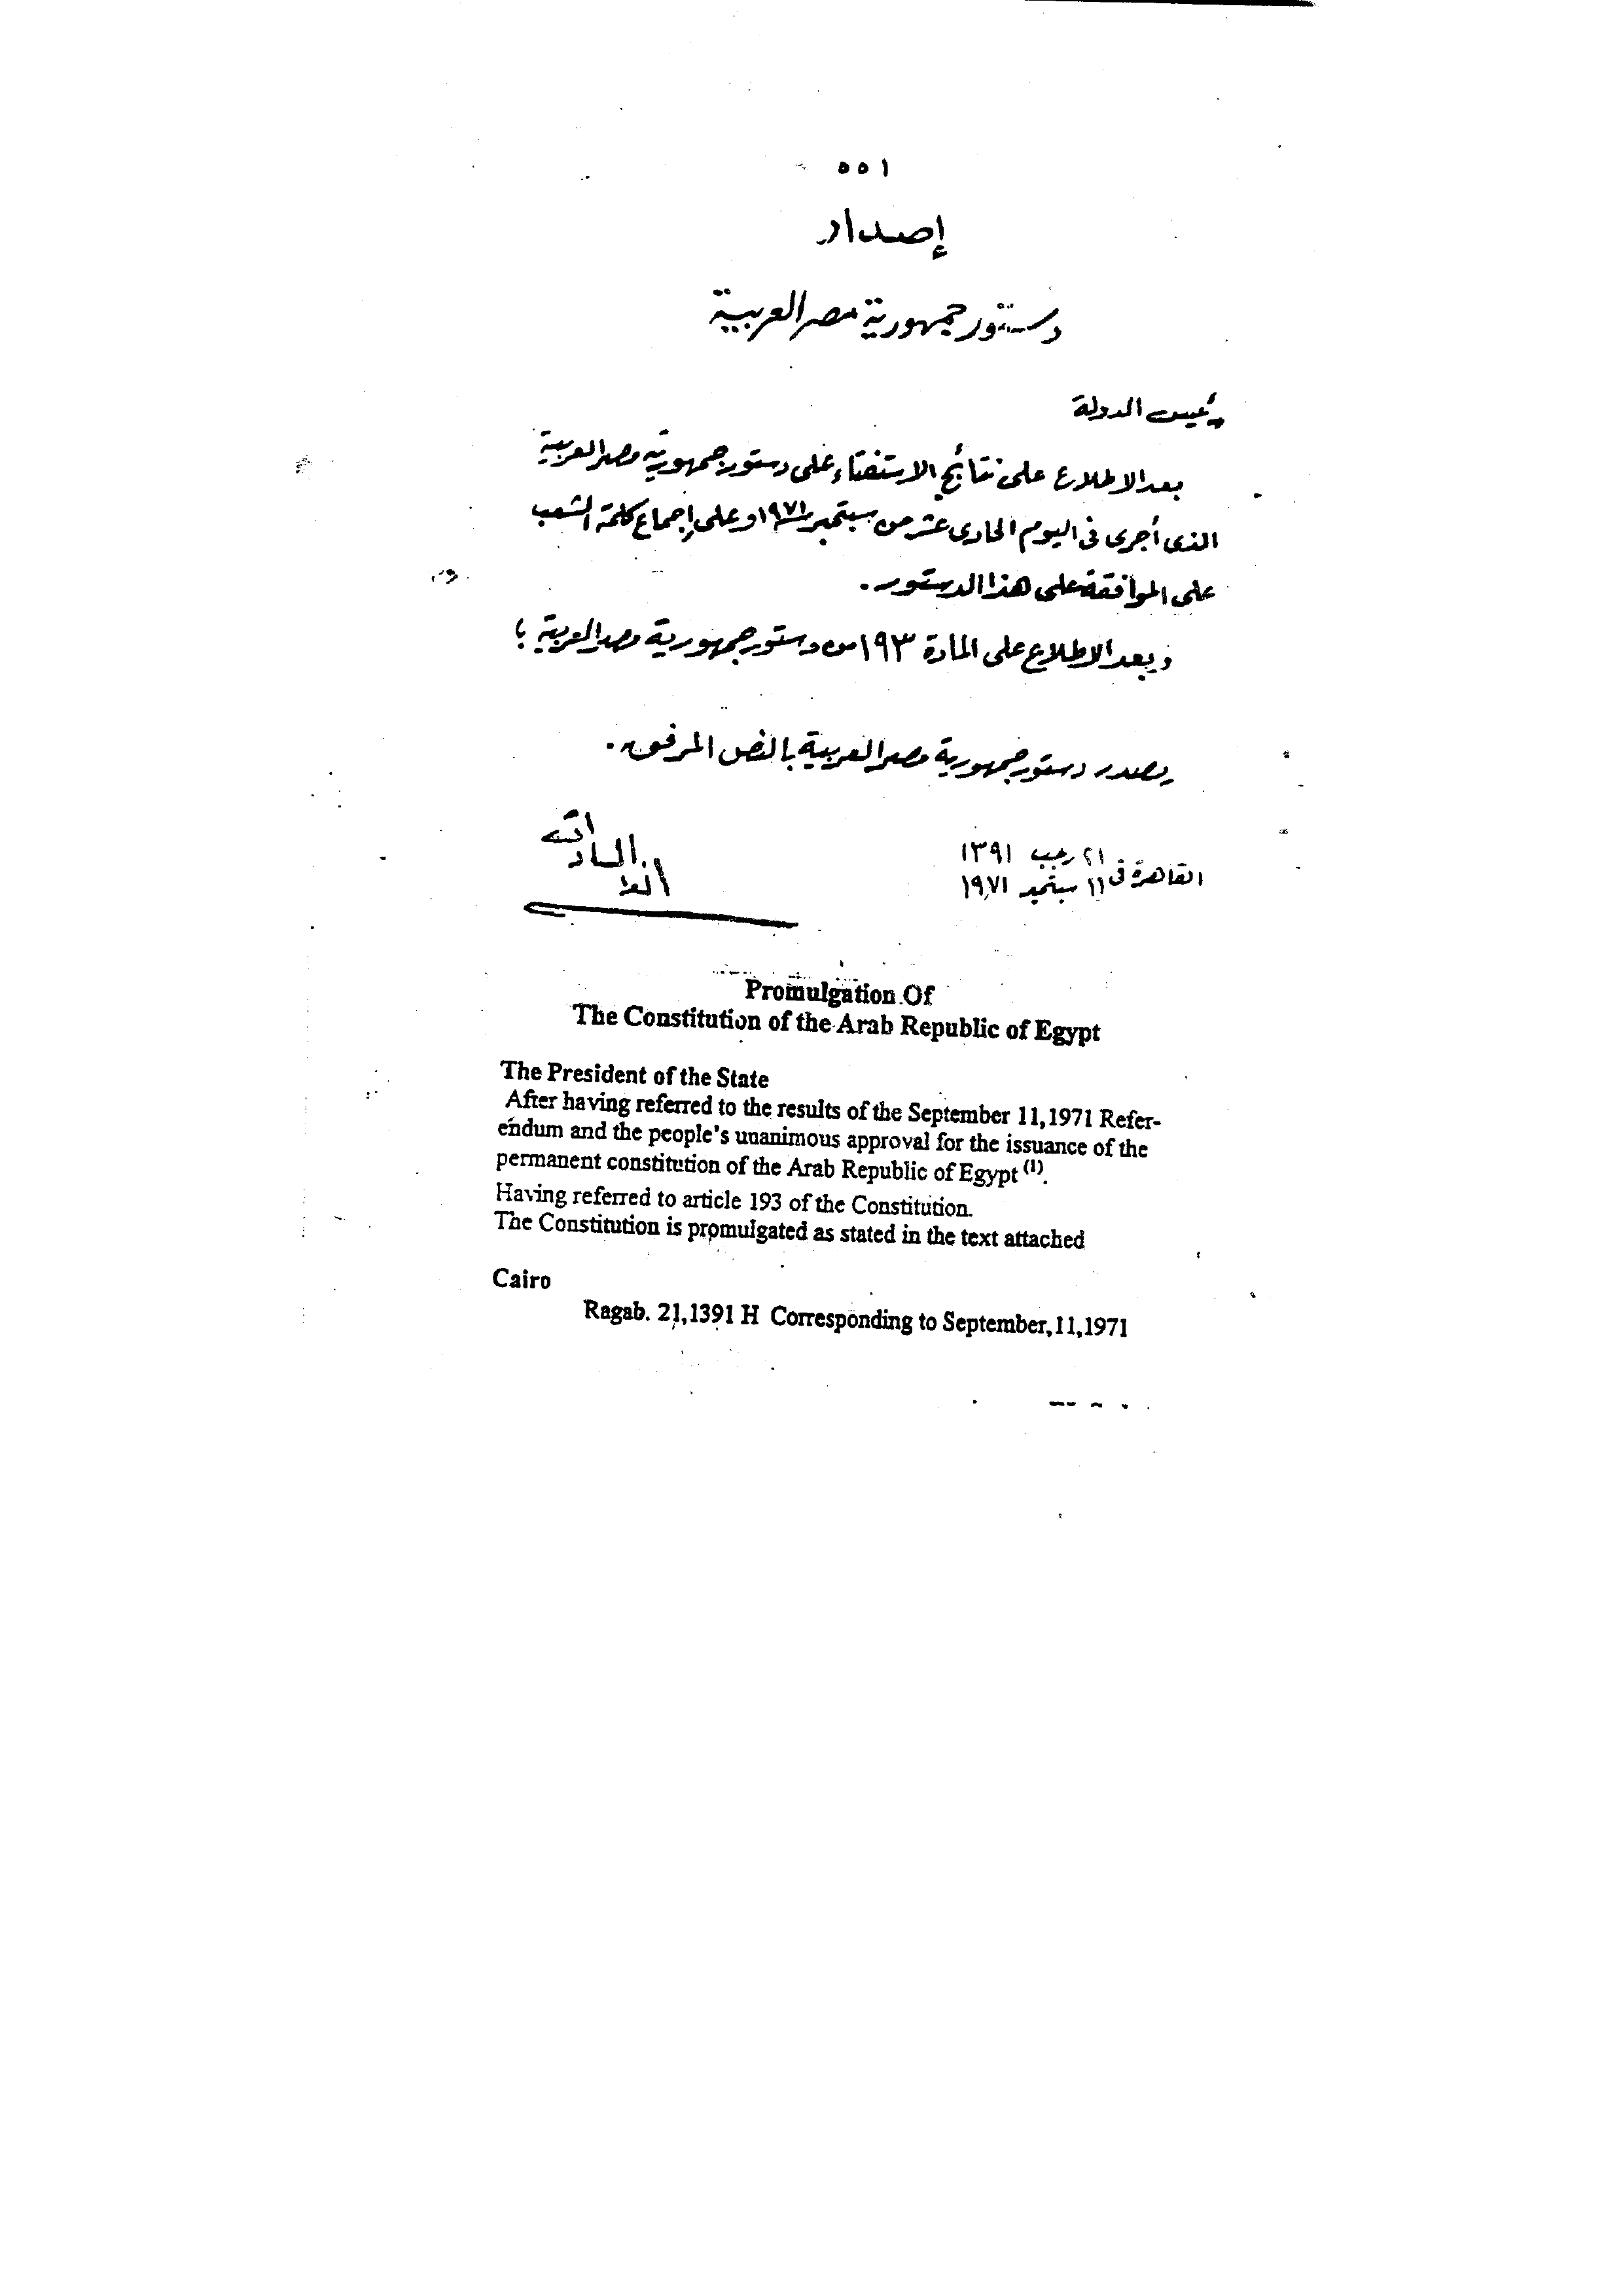 ٥٥١
إصدار
دستور جمهورية مصر العربية
رئيس الدولة
بعد الاطلاع على نتائج الاستفتاء على دستور جمهورية مصر العربية
الذى أجرى فى اليوم الحادى عشر من سبتمبر ١٩٧١ وعلى إجماع كلمة الشعب
على الموافقة على هذا الدستور.
وبعد الاطلاع على المادة ١٩٣ من دستور جمهورية مصر العربية ؛
يصدر دستور جمهورية مصر العربية بالنص المرفق.
القاهرة فى ٢١ رجب ١٣٩١
١١ سبتمبر ١٩٧١
السادات
Promulgation Of
The Constitution of the Arab Republic of Egypt
The President of the State
After having referred to the results of the September 11,1971 Refer-
endum and the people's unanimous approval for the issuance of the
permanent constitution of the Arab Republic of Egypt (1).
Having referred to article 193 of the Constitution.
The Constitution is promulgated as stated in the text attached
Cairo
Ragab. 21,1391 H Corresponding to September,11,1971